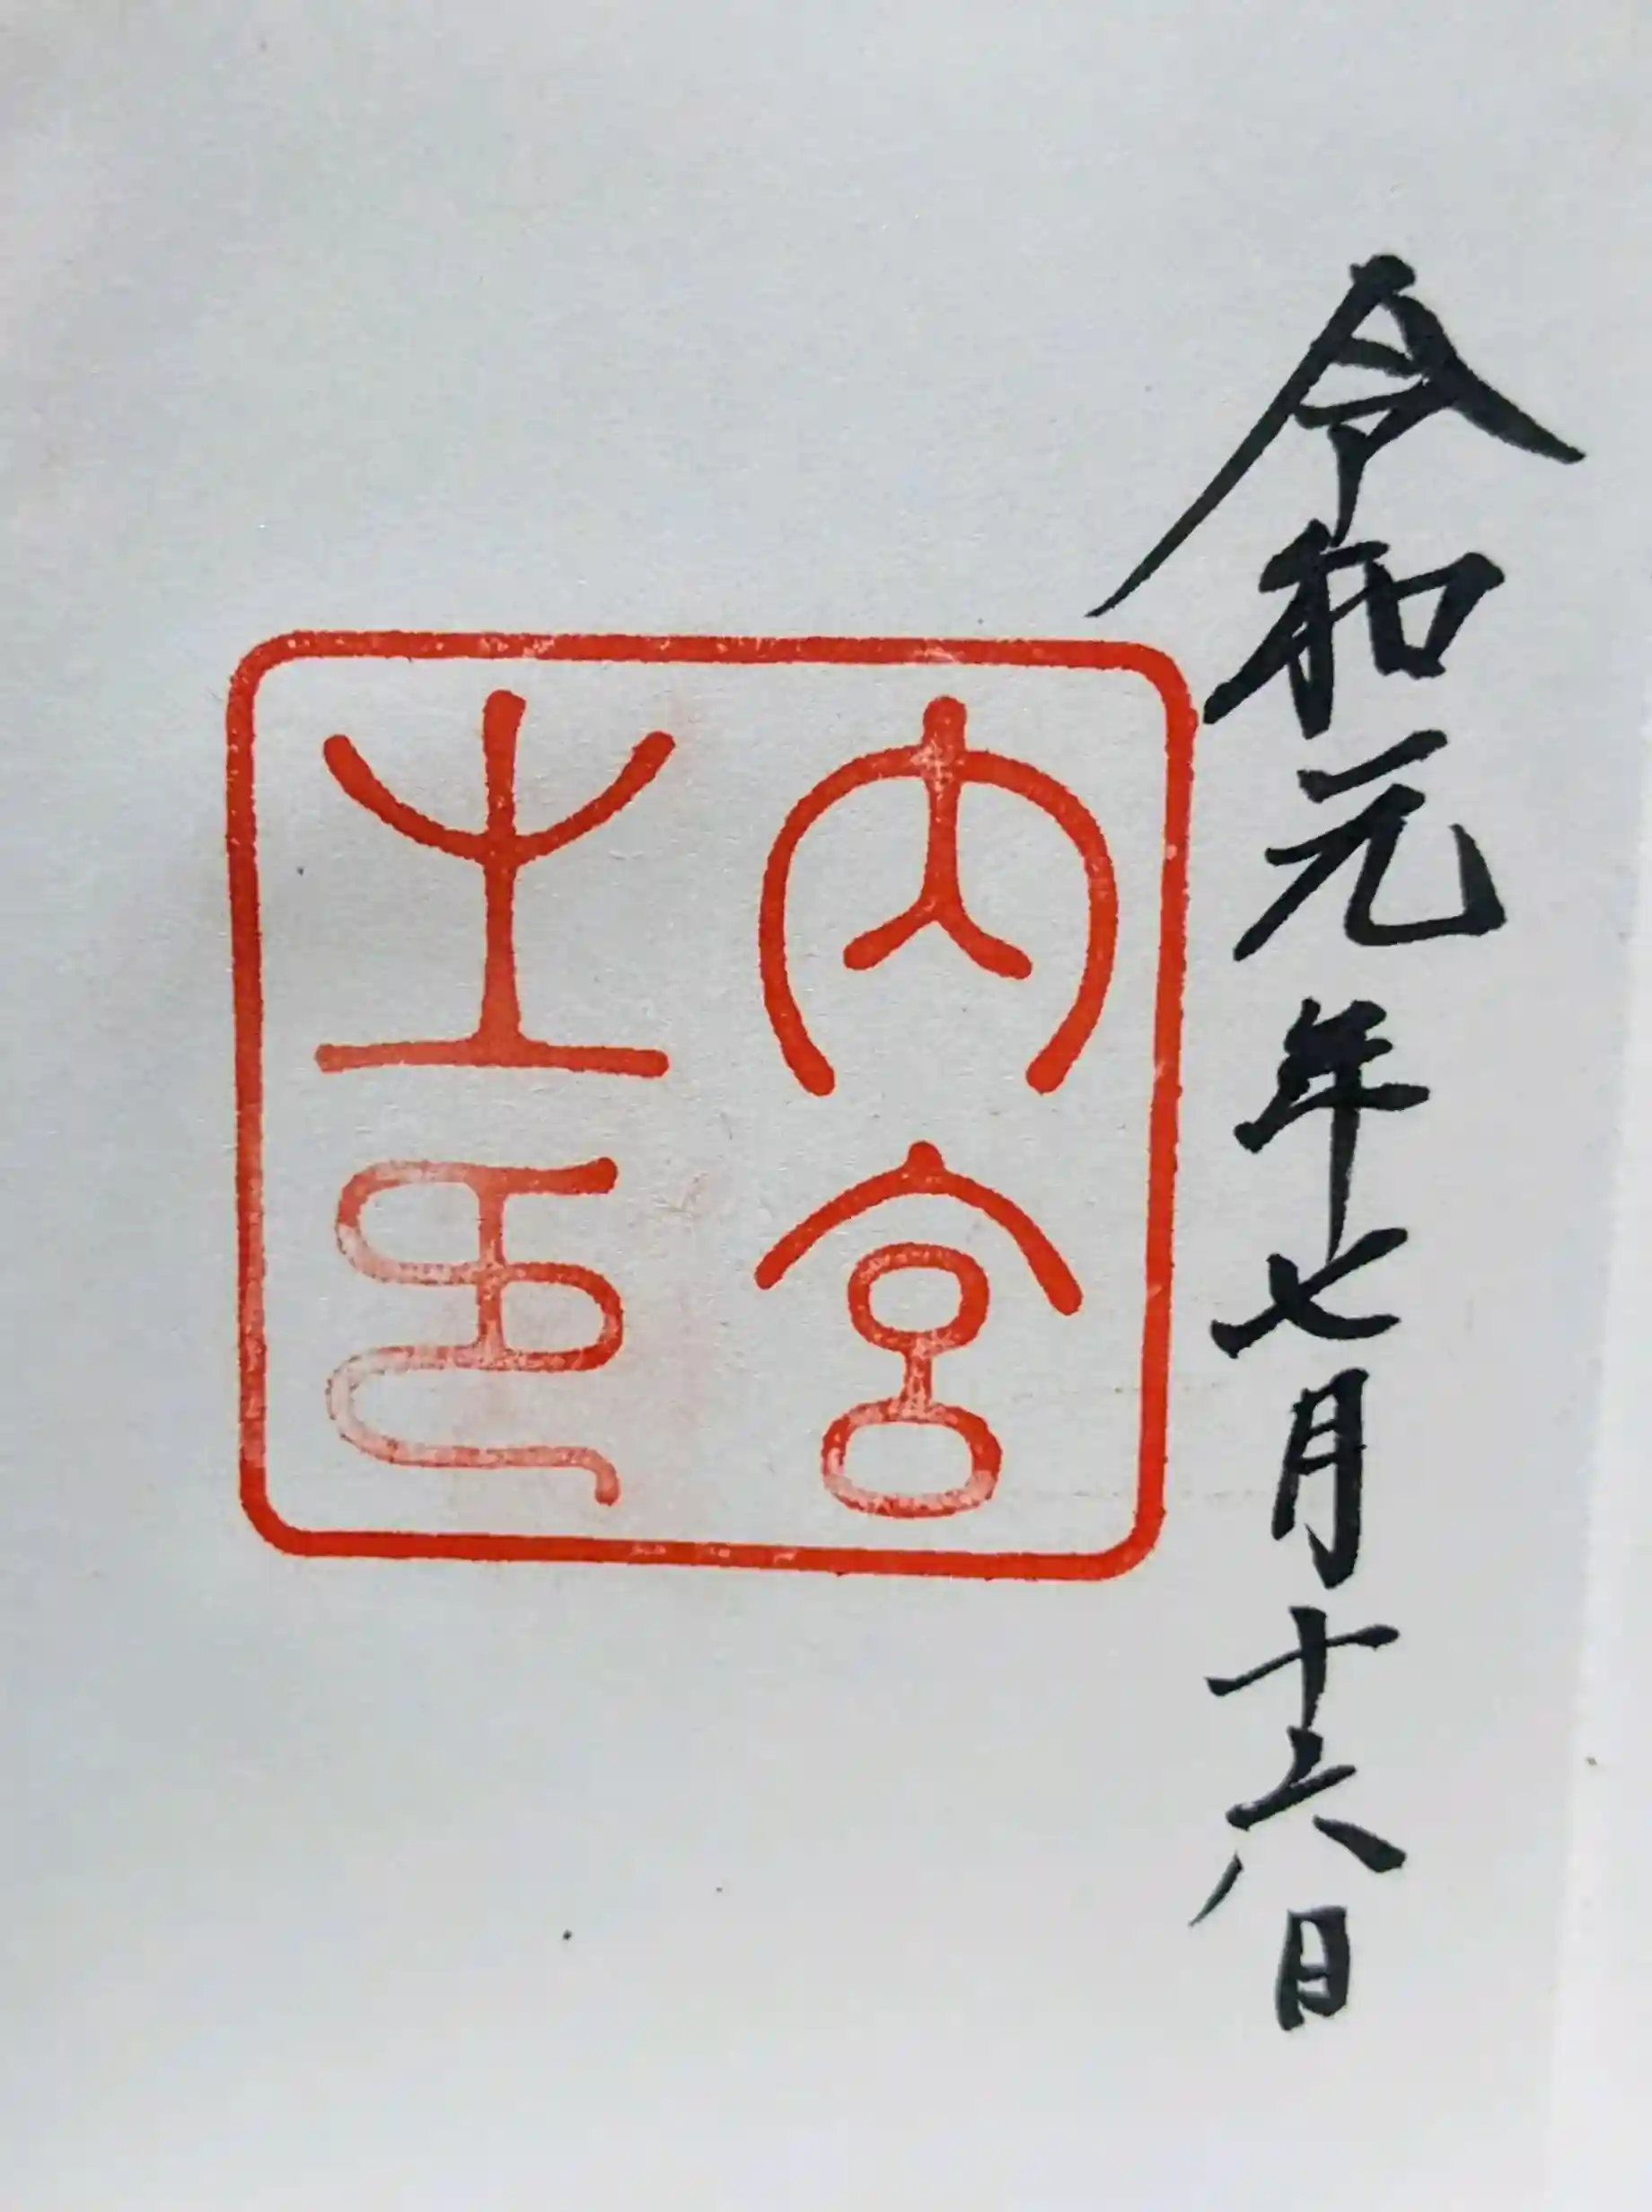 令和元年七月十六日
内宮之印